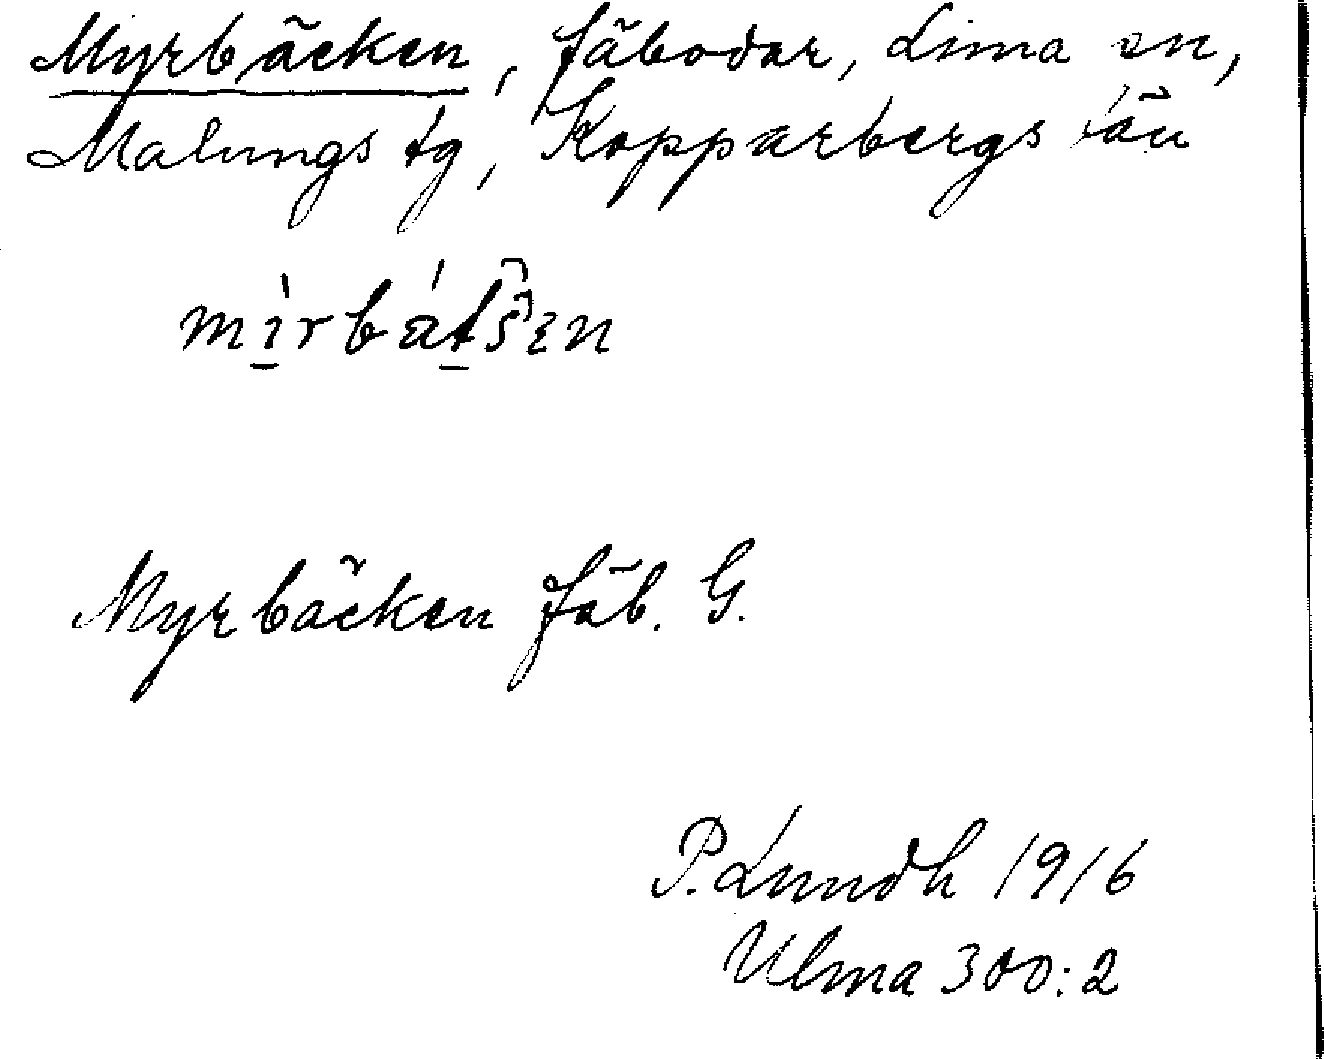 Myrbäcken, fäbodar, Lima sn,
Malungs tg, Kopparbergs län
Myrbäcken fäb. G.
P. Lundh 1916
Ulma 300:2